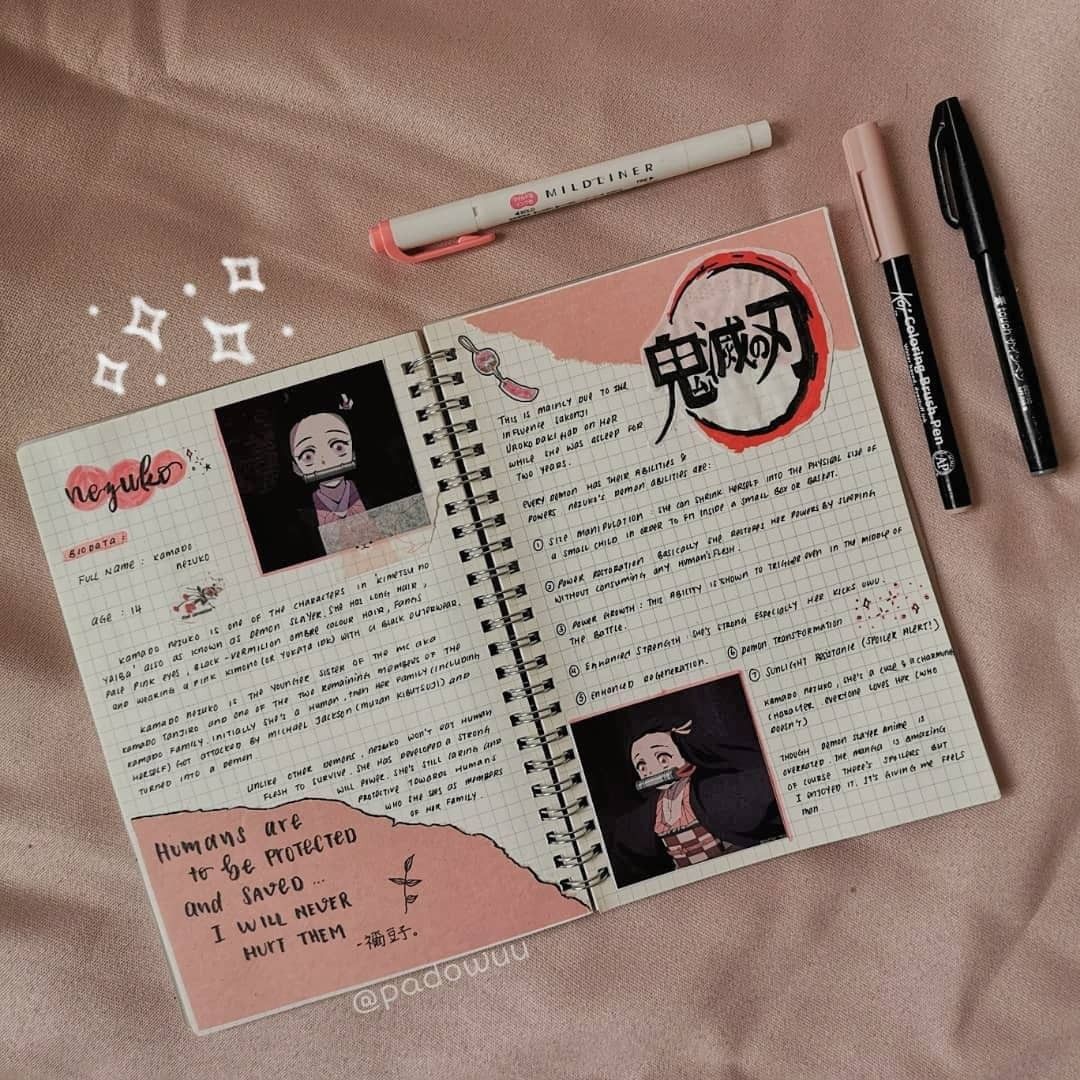 nezuko
BIODATA:
FULL NAME : KAMADO
NEZUKO
AGE : 14
KAMADO NEZUKO IS ONE OF THE CHARACTERS IN 'KIMETSU NO
YAIBA', ALSO AS KNOWN AS DEMON SLAYER. SHE HAS LONG HAIR,
PALE PINK EYES, BLACK-VERMILION OMBRE COLOUR HAIR, FANGS
AND WEARING A PINK KIMONO (OR YUKATA IDK) WITH A BLACK OUTERWEAR.
KAMADO NEZUKO IS THE YOUNGER SISTER OF THE MC AKA
KAMADO TANJIRO AND ONE OF THE TWO REMAINING MEMBERS OF THE
KAMADO FAMILY. INITIALLY SHE'S A HUMAN, THEN HER FAMILY (INCLUDING
HERSELF) GOT ATTACKED BY MICHAEL JACKSON (MUZAN KIBUTSUJI) AND
TURNED INTO A DEMON.
UNLIKE OTHER DEMONS, NEZUKO WON'T EAT HUMAN
FLESH TO SURVIVE. SHE HAS DEVELOPED A STRONG
WILL POWER. SHE'S STILL CARING AND
PROTECTIVE TOWARDS HUMANS
WHO SHE SEES AS MEMBERS
OF HER FAMILY.
HUMANS ARE
TO BE PROTECTED
AND SAVED...
I WILL NEVER
HURT THEM
-禰豆子。
鬼滅の刃
THIS IS MAINLY DUE TO THE
INFLUENCE SAKONJI
UROKODAKI HAD ON HER
WHILE SHE WAS ASLEEP FOR
TWO YEARS.
EVERY DEMON HAS THEIR ABILITIES &
POWERS NEZUKO'S DEMON ABILITIES ARE:
① SIZE MANIPULATION : SHE CAN SHRINK HERSELF INTO THE PHYSICAL SIZE OF
A SMALL CHILD IN ORDER TO FIT INSIDE A SMALL BOX OR BASKET.
② POWER RESTORATION BASICALLY SHE RESTORES HER POWERS BY SLEEPING
WITHOUT CONSUMING ANY HUMAN'S FLESH.
③ POWER GROWTH : THIS ABILITY IS SHOWN TO TRIGGER EVEN IN THE MIDDLE OF
THE BATTLE.
④ ENHANCED STRENGTH : SHE'S STRONG ESPECIALLY HER KICKS UWU.
⑤ ENHANCED REGENERATION. ⑥ DEMON TRANSFORMATION
⑦ SUNLIGHT RESISTANCE (SPOILER ALERT!)
KAMADO NEZUKO, SHE'S A CUTE & A CHARMING
CHARACTER. EVERYONE LOVES HER (WHO
DOESN'T)
THOUGH DEMON SLAYER ANIME IS
OVERRATED. THE MANGA IS AMAZING
OF COURSE THERE'S SPOILERS BUT
I ENJOYED IT. IT'S GIVING ME FEELS
MAN
MILDLINER
Koi Coloring Brush Pen
AP
touch
@padowuu